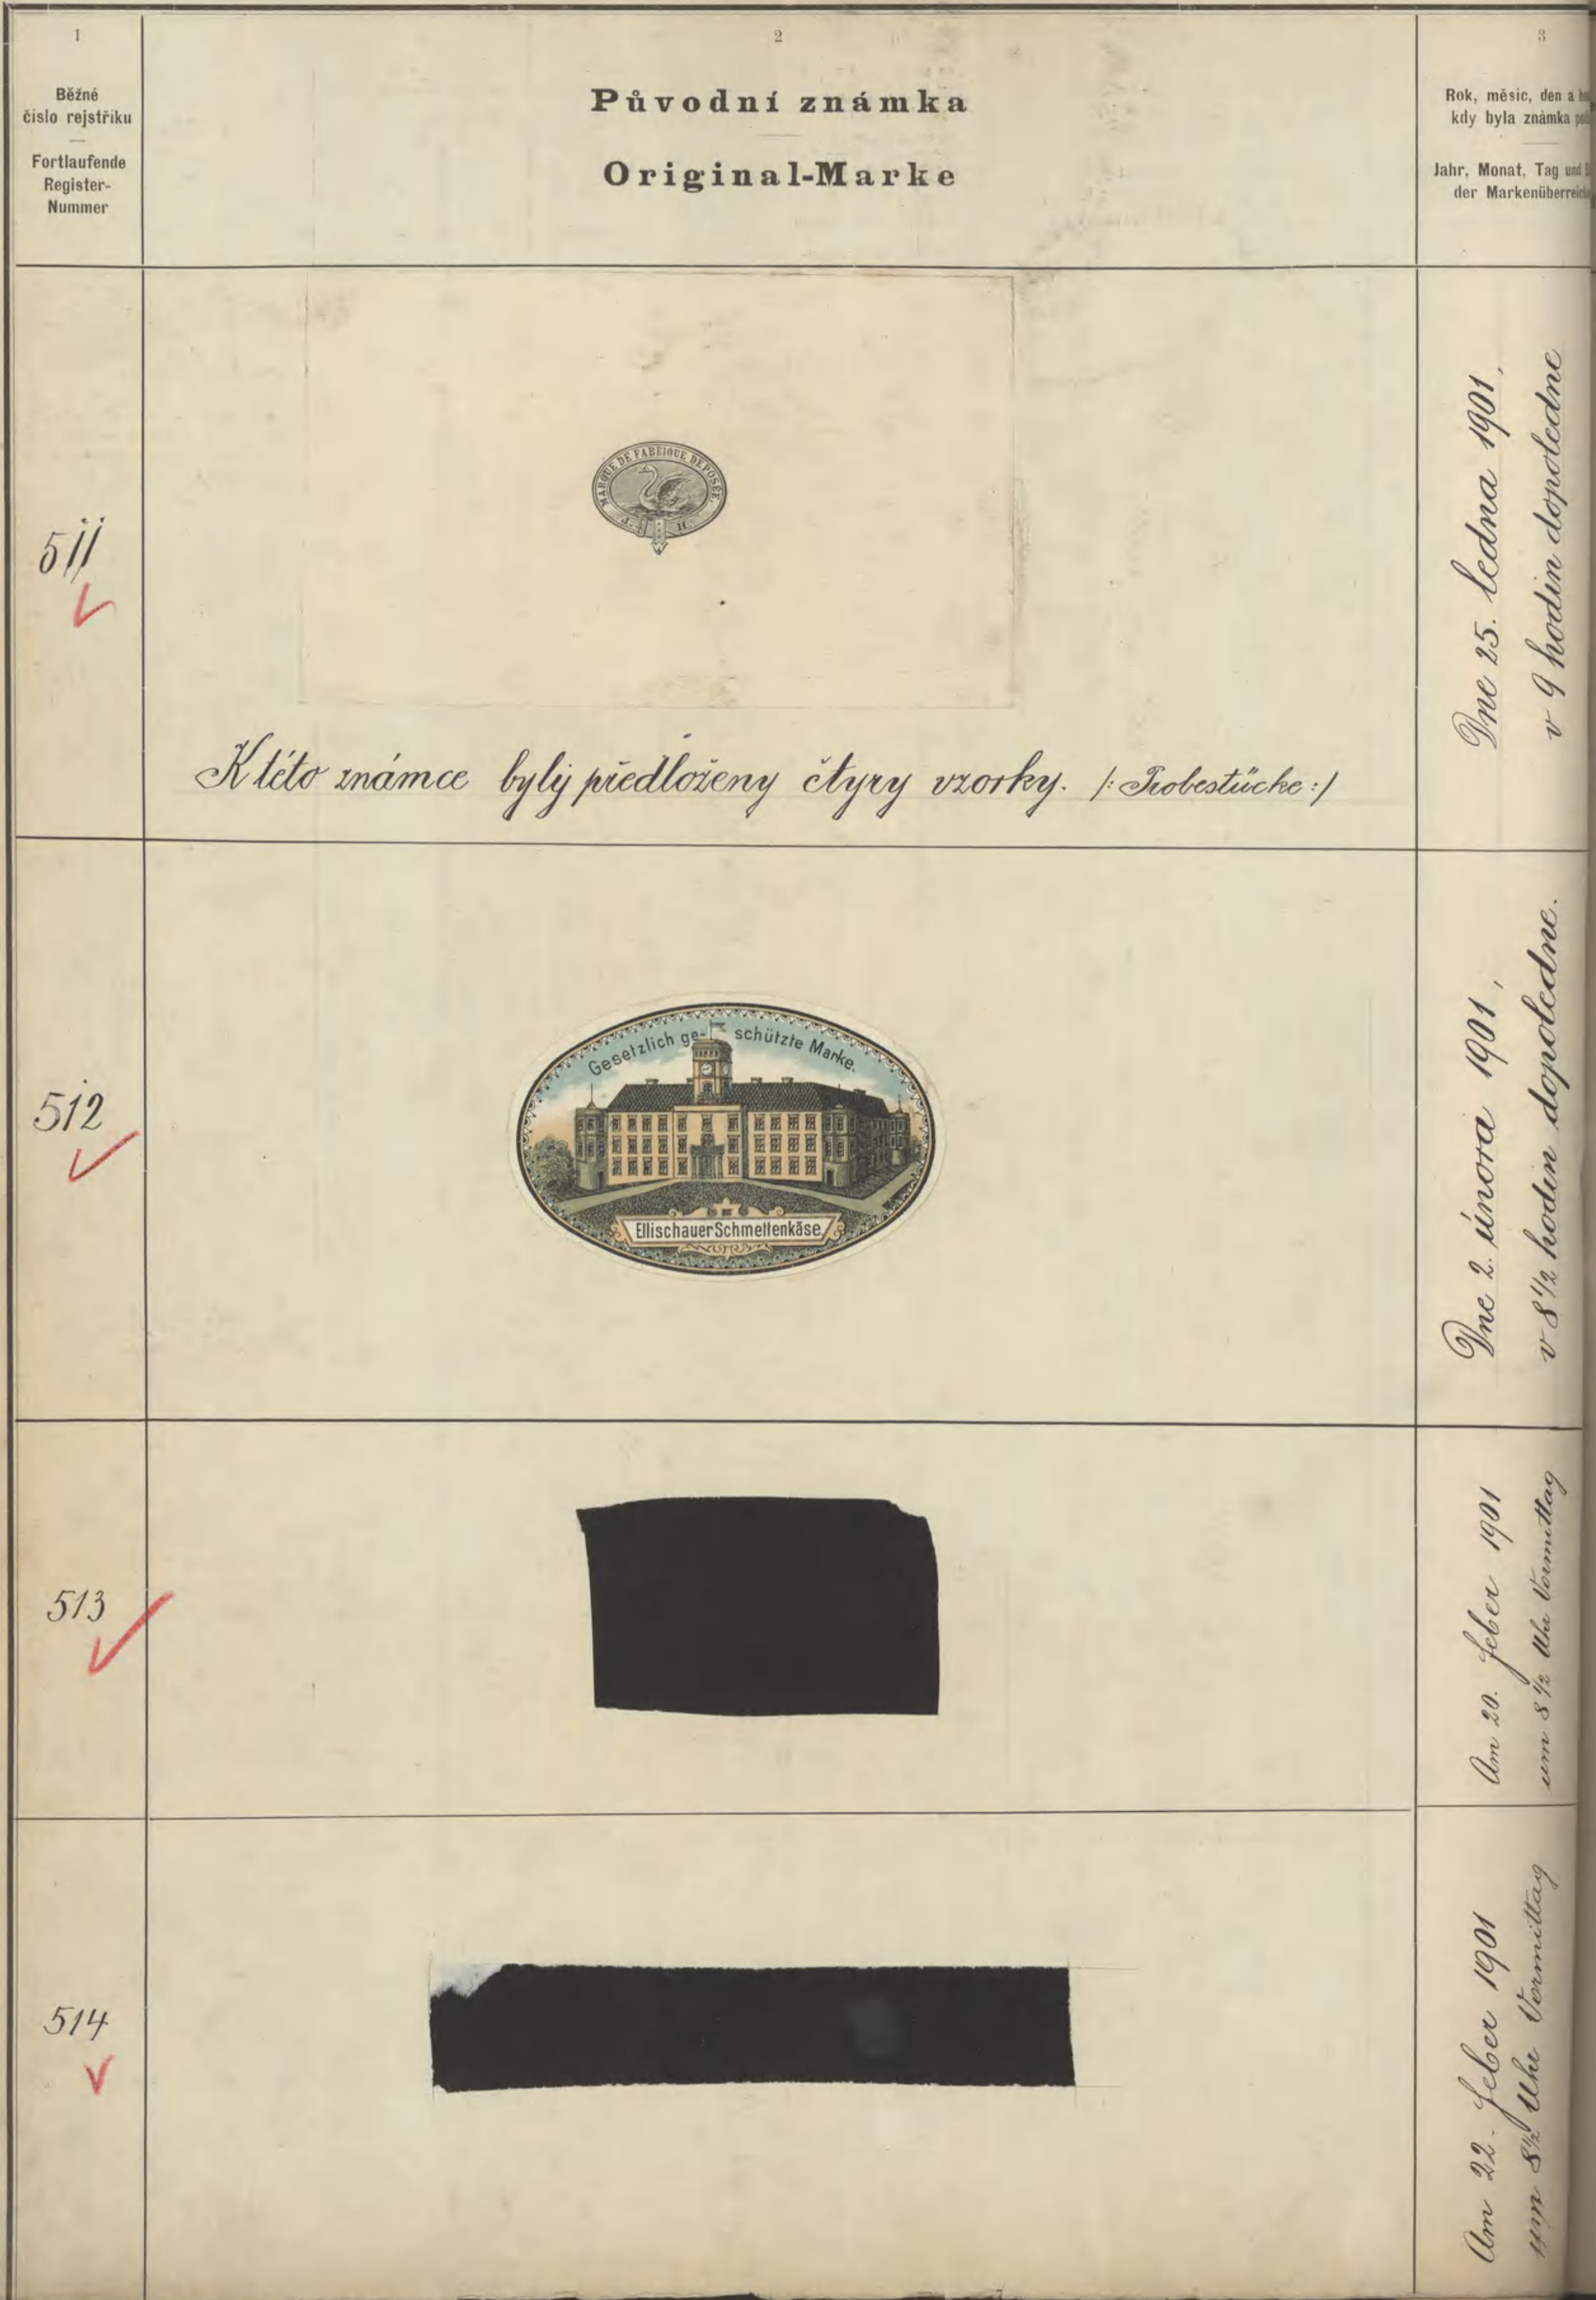 1
Běžné
číslo rejstříku
Fortlaufende
Register-
Nummer
2
Původní známka
Original-Marke
3
Rok, měsíc, den a
kdy byla známka
Jahr, Monat, Tag und
der Markenüberreich
511
MARQUE DE FABRIQUE DÉPOSÉE.
J. H.
K této známce byly předloženy čtyry vzorky. /: Probestücke :/
Dne 25. ledna 1901,
v 9 hodin dopoledne
512
Gesetzlich ge- schützte Marke.
Ellischauer Schmettenkäse
Dne 2. února 1901,
v 8 1/2 hodin dopoledne.
513
Am 20. feber 1901
um 8 1/2 Uhr Vormittag
514
Am 22. feber 1901
um 8 1/2 Uhr Vormittag